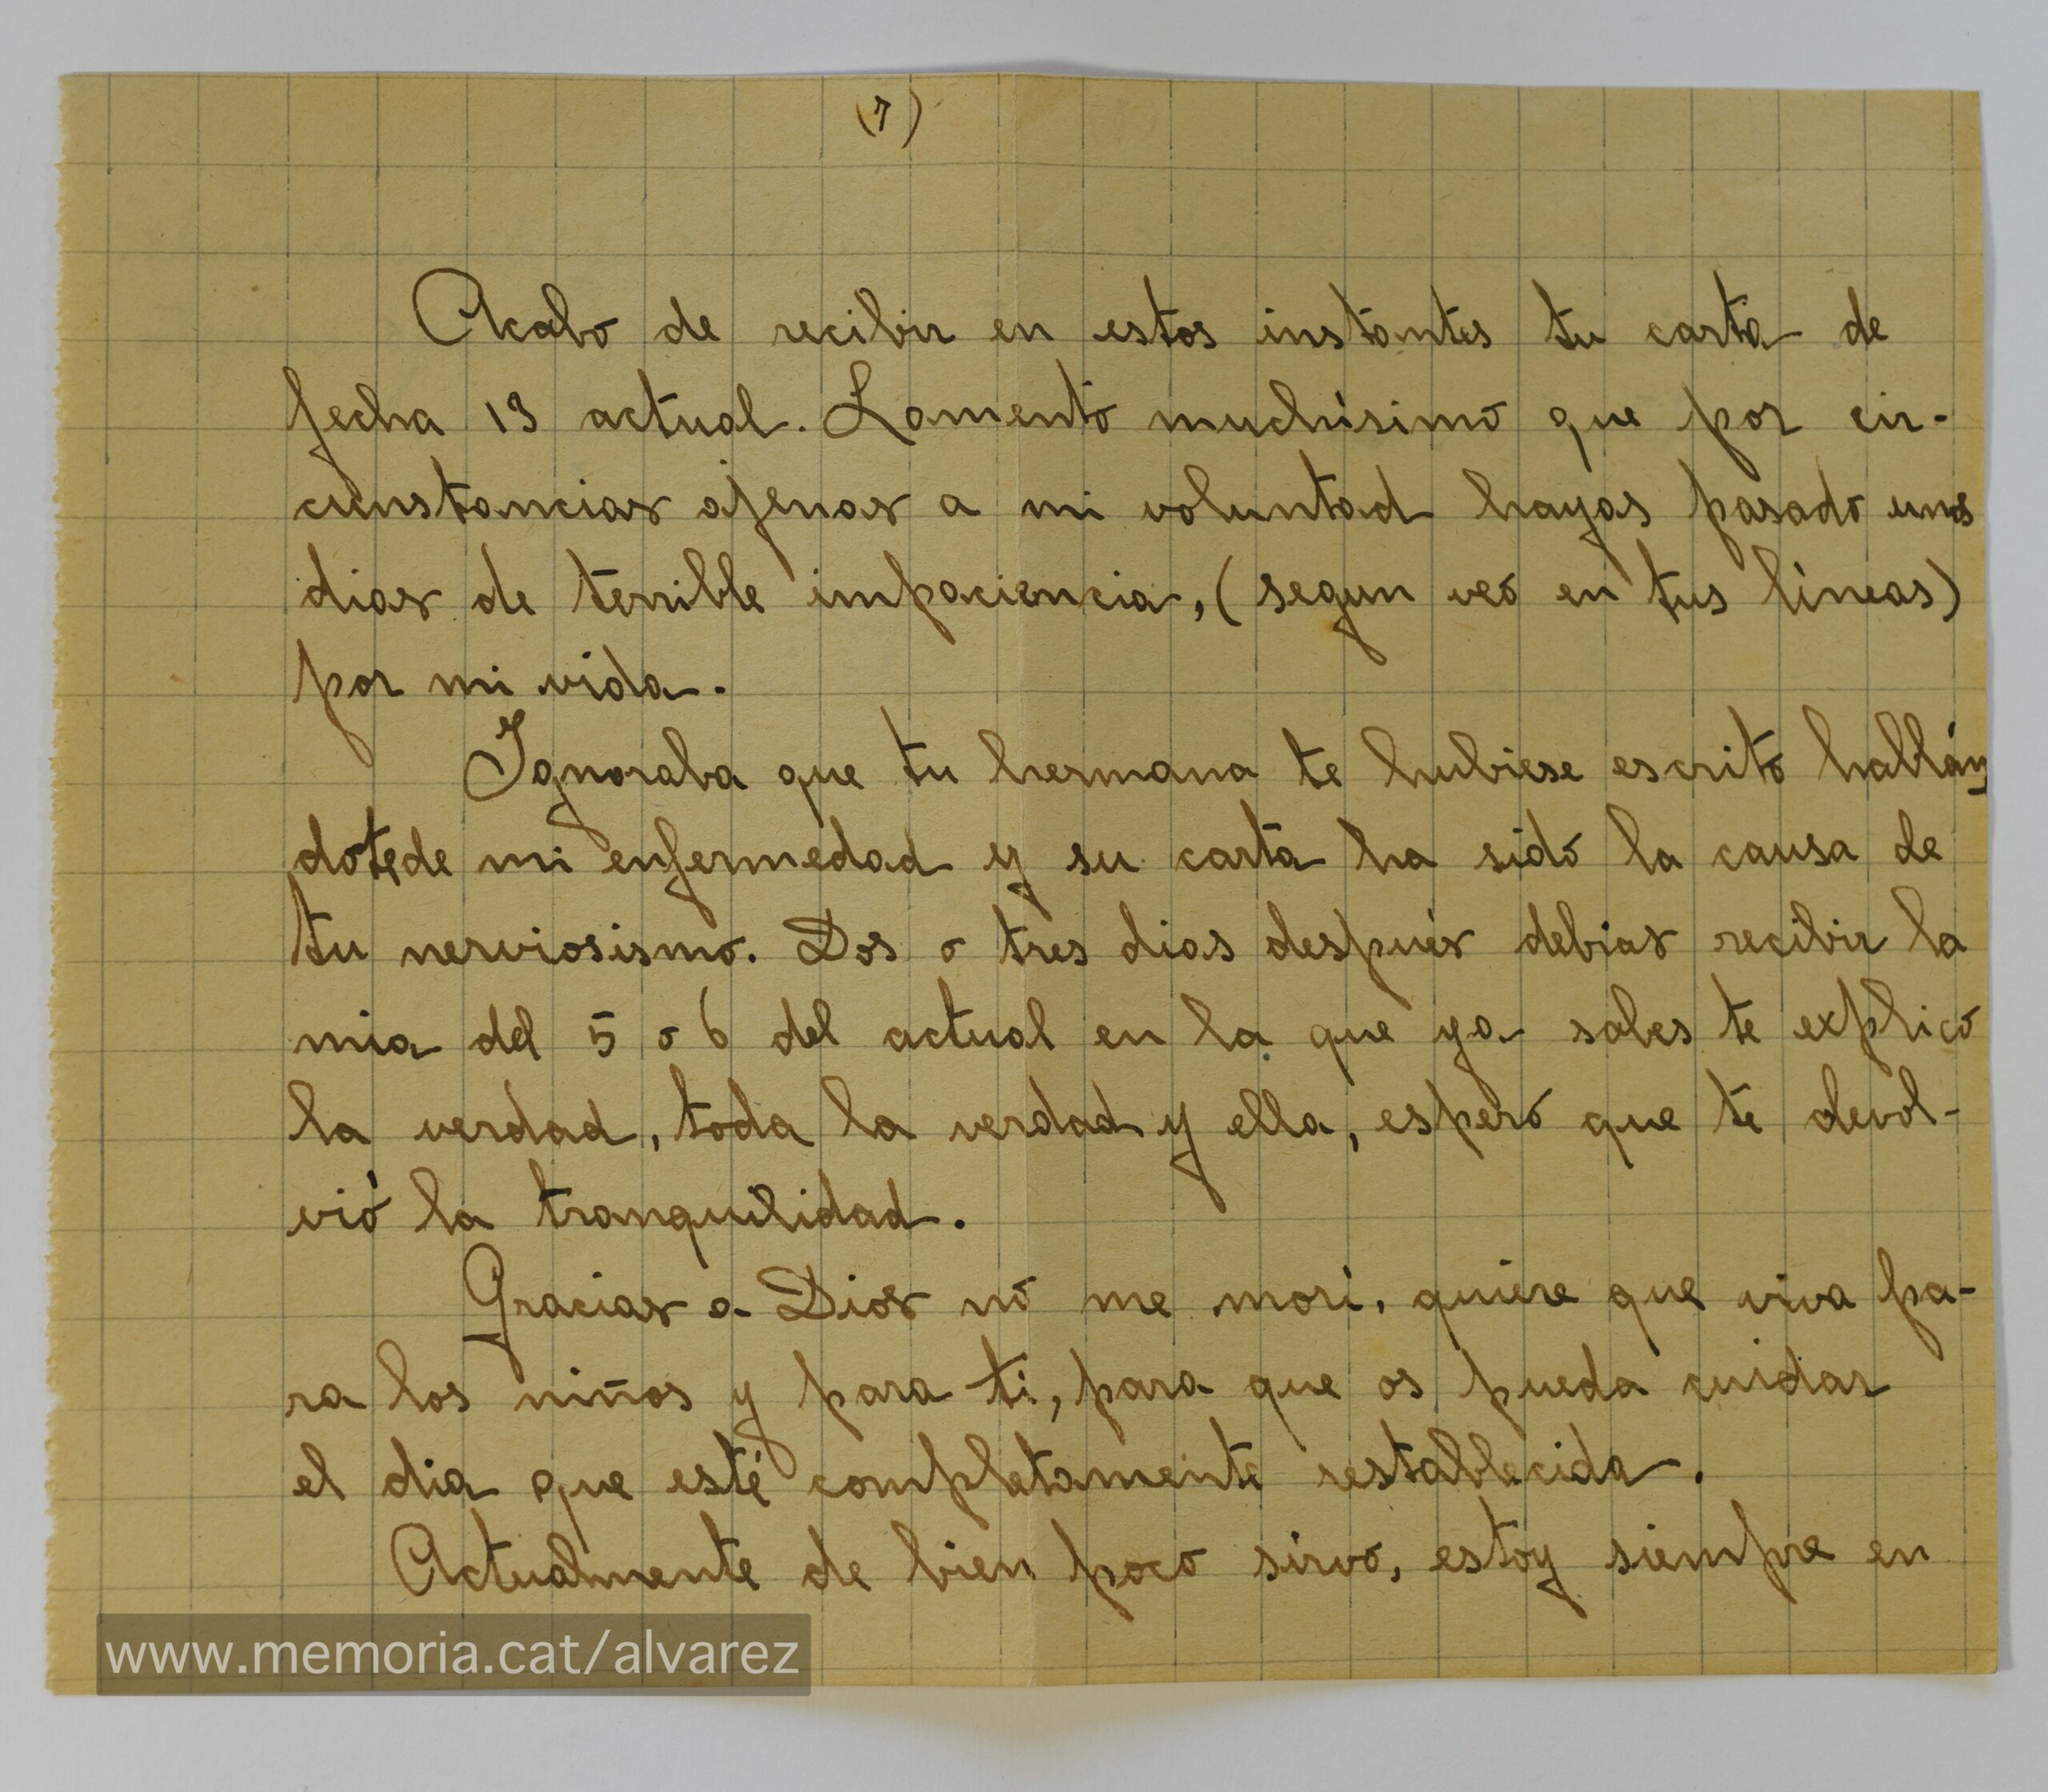 (7)
Acabo de recibir en estos instantes tu carta de
fecha 13 actual. Lamento muchísimo que por cir-
cunstancias ajenas a mi voluntad hayas pasado unos
dias de terrible impaciencia, (segun veo en tus líneas)
por mi vida.
Ignoraba que tu hermana te hubiese escrito hallán
dotede mi enfermedad y su carta ha sido la causa de
tu nerviosismo. Dos o tres dias después debias recibir la
mia del 5 o 6 del actual en la que ya sabes te explico
la verdad, toda la verdad y ella, espero que te devol-
vió la tranquilidad.
Gracias a Dios no me morí, quiere que viva pa-
ra los niños y para ti, para que os pueda cuidar
el dia que esté completamente restablecida.
Actualmente de bien poco sirvo, estoy siempre en
www.memoria.cat/alvarez